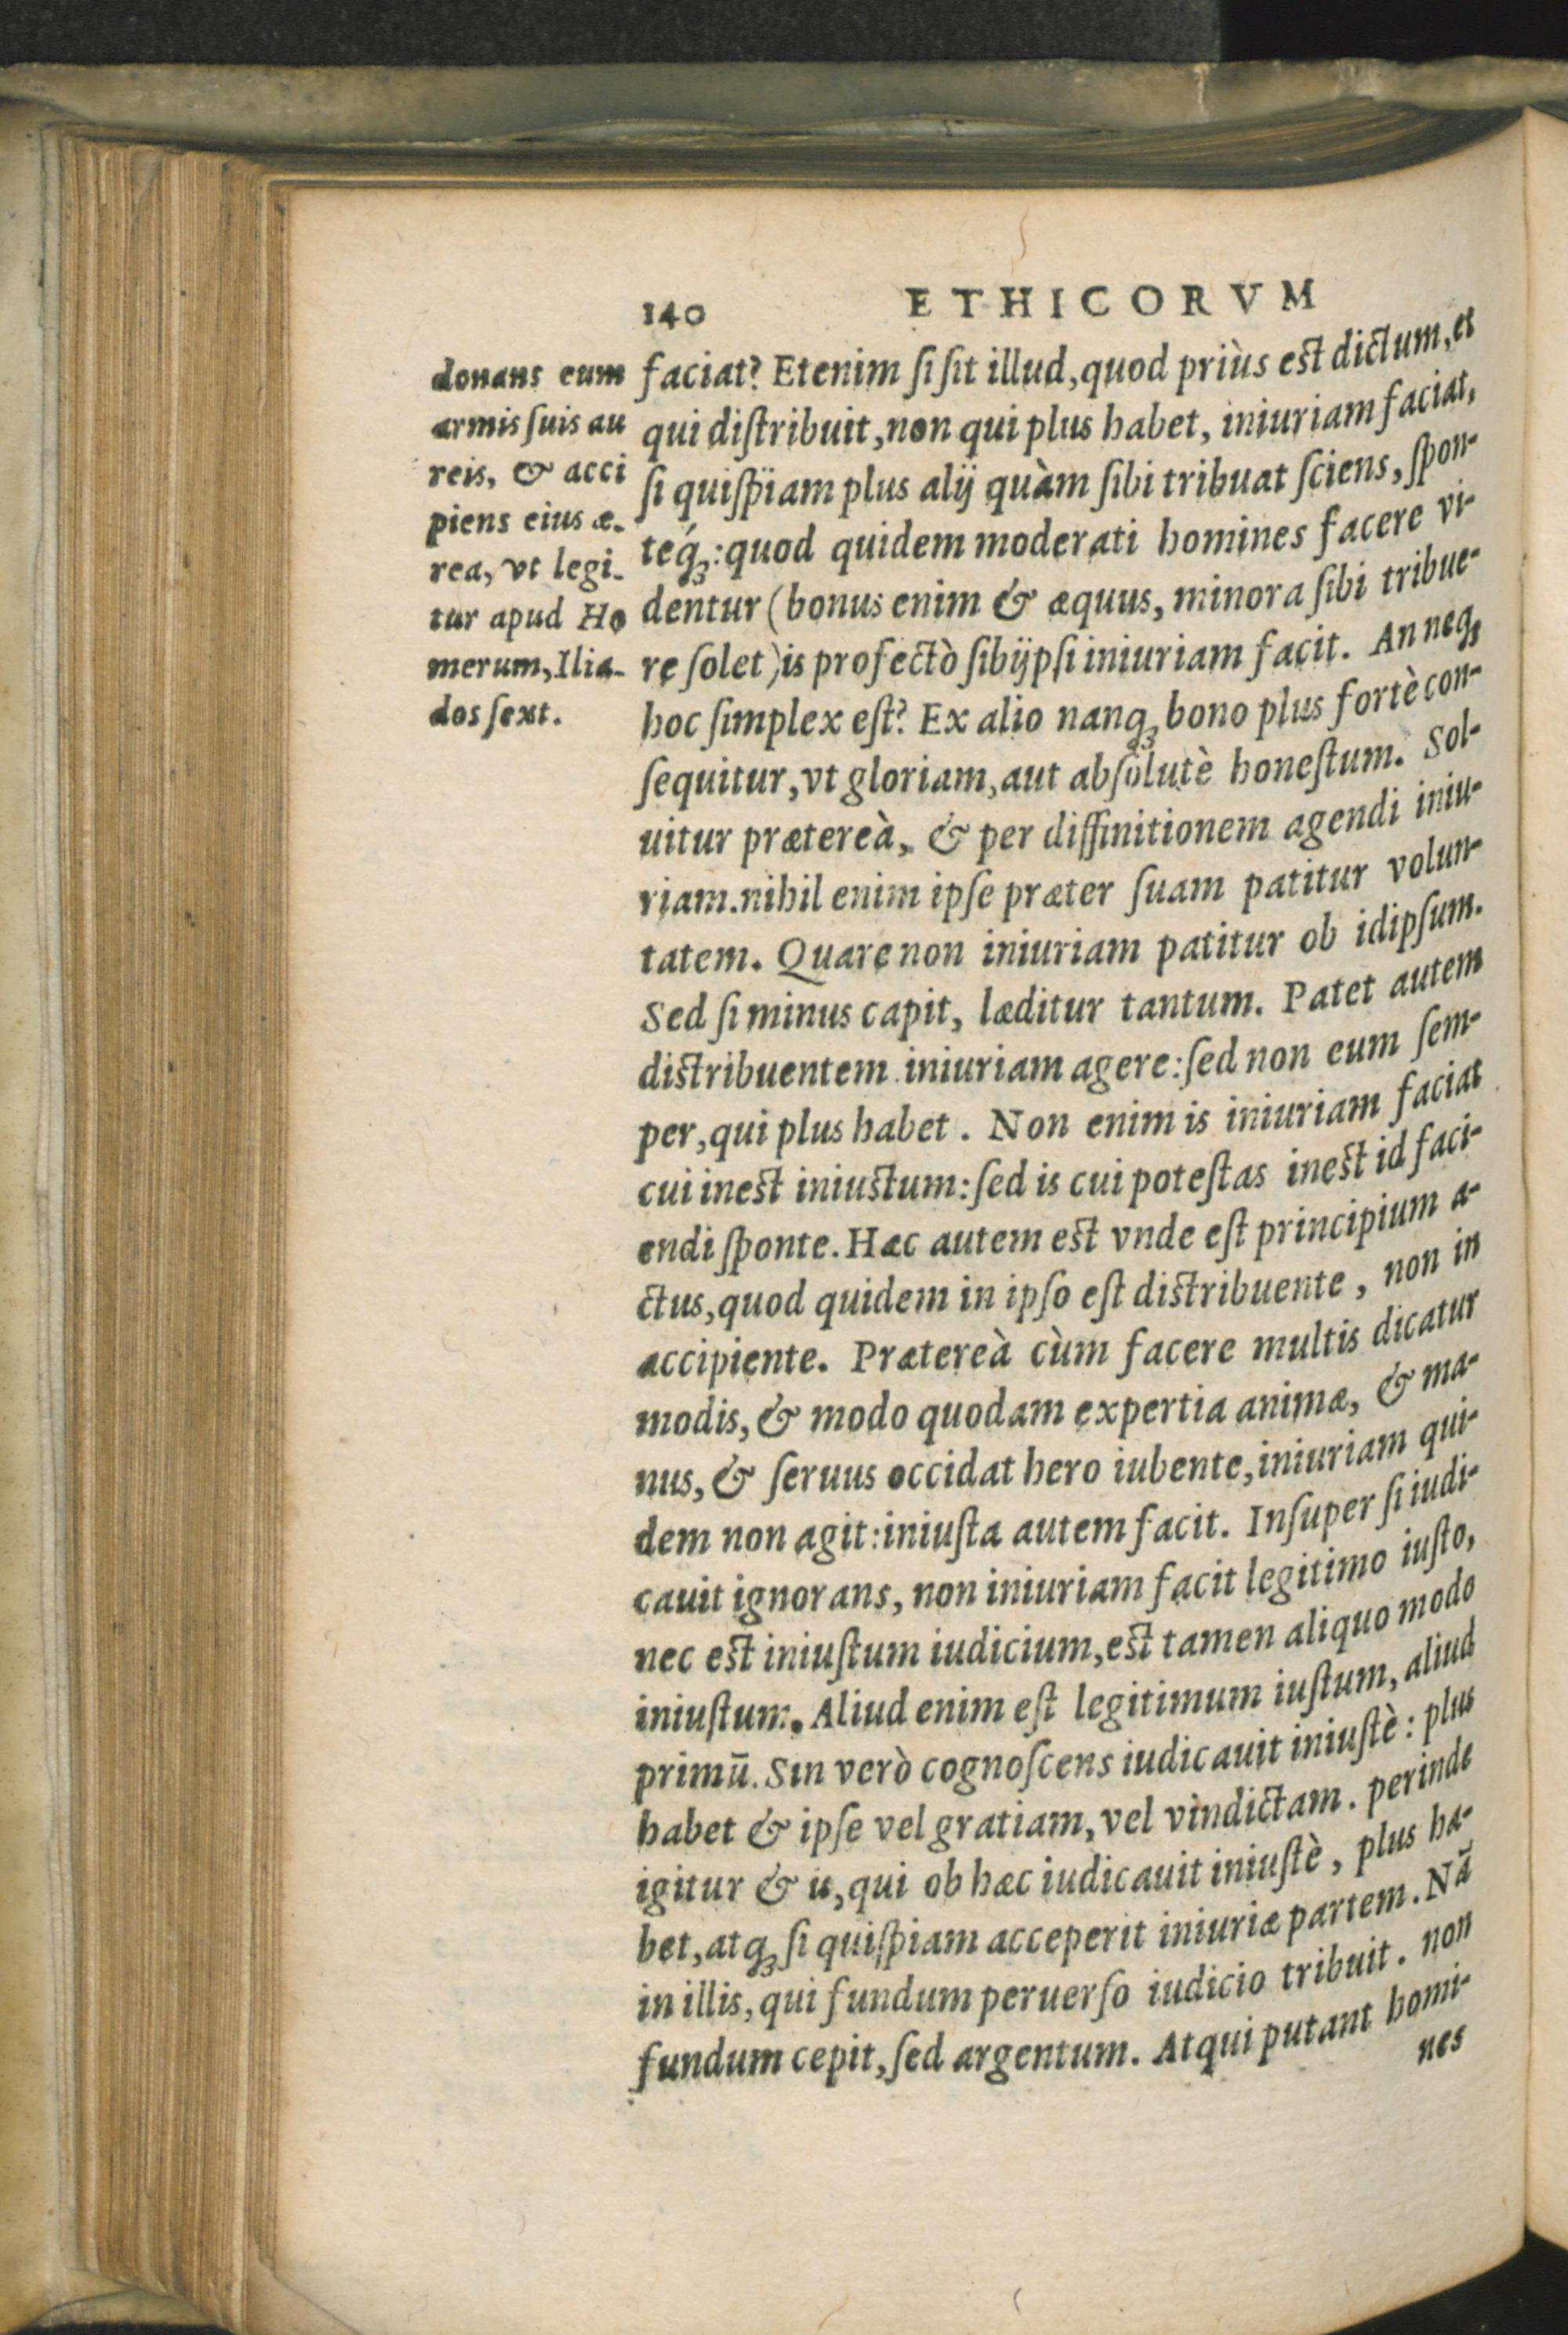 140 ETHICORVM
donans eum
armis ſuis au
reis, & acci
piens eius æ-
rea, vt legi-
tur apud Ho
merum, Ilia-
dos ſext.
faciat? Etenim ſi ſit illud, quod priùs est dictum, et
qui diſtribuit, non qui plus habet, iniuriam faciat,
ſi quiſpiam plus alij quàm ſibi tribuat ſciens, ſpon-
teq́ꝫ: quod quidem moderati homines facere vi-
dentur (bonus enim & æquus, minora ſibi tribue-
re ſolet) is profectò ſibijpſi iniuriam facit. An neqꝫ
hoc ſimplex eſt? Ex alio nanqꝫ bono plus fortè con-
ſequitur, vt gloriam, aut abſolutè honeſtum. Sol-
uitur prætereà, & per diffinitionem agendi iniu-
riam. nihil enim ipſe præter ſuam patitur volun-
tatem. Quare non iniuriam patitur ob idipſum.
Sed ſi minus capit, læditur tantum. Patet autem
distribuentem iniuriam agere: ſed non eum ſem-
per, qui plus habet. Non enim is iniuriam faciat
cui inest iniustum: ſed is cui poteſtas inest id faci-
endi ſponte. Hæc autem est vnde eſt principium a-
ctus, quod quidem in ipſo eſt distribuente, non in
accipiente. Prætereà cùm facere multis dicatur
modis, & modo quodam expertia animæ, & ma-
nus, & ſeruus occidat hero iubente, iniuriam qui-
dem non agit: iniuſta autem facit. Inſuper ſi iudi-
cauit ignorans, non iniuriam facit legitimo iuſto,
nec est iniuſtum iudicium, est tamen aliquo modo
iniuſtum. Aliud enim eſt legitimum iuſtum, aliud
primū. Sin verò cognoſcens iudicauit iniuſtè: plus
habet & ipſe vel gratiam, vel vindictam. perinde
igitur & is, qui ob hæc iudicauit iniuſtè, plus ha-
bet, atqꝫ ſi quiſpiam acceperit iniuriæ partem. Nā
in illis, qui fundum peruerſo iudicio tribuit. non
fundum cepit, ſed argentum. Atqui putant homi-
nes